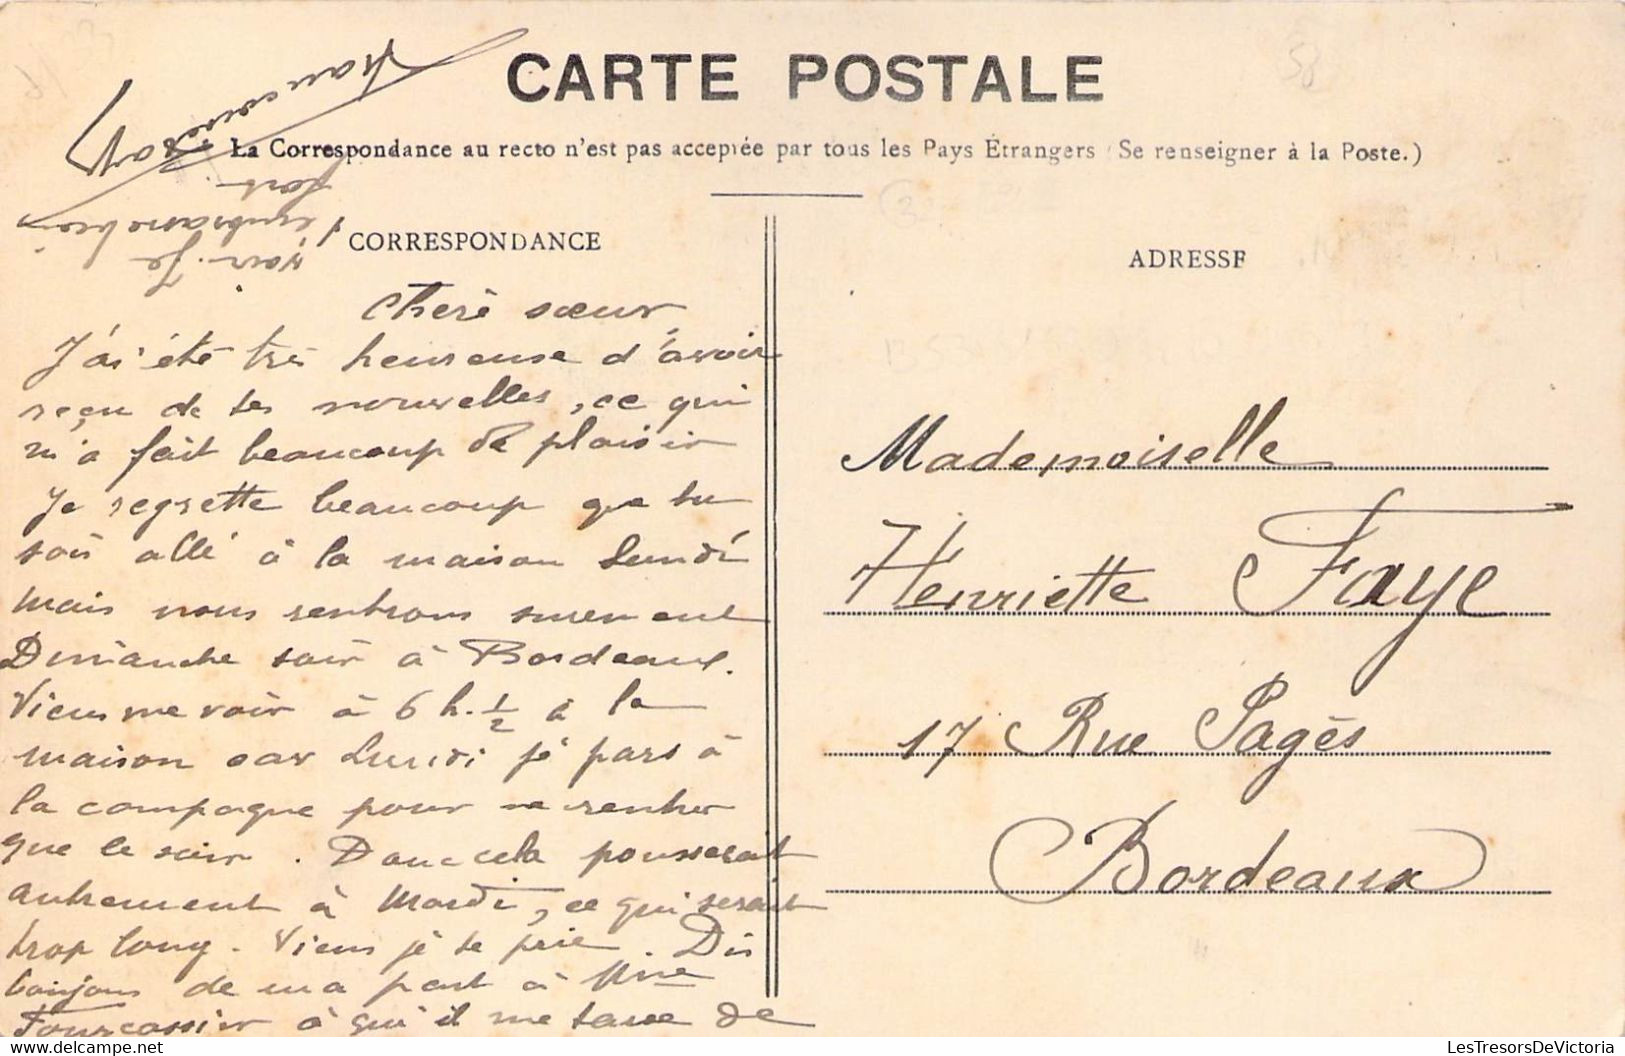 CARTE POSTALE
La Correspondance au recto n'est pas acceptée par tous les Pays Étrangers (Se renseigner à la Poste.)
CORRESPONDANCE
Cherè sœur,
J'ai été très heureuse d'avoir
reçu de tes nouvelles, ce qui
m'a fait beaucoup de plaisir
Je regrette beaucoup que tu
sois allé à la maison Lundi
mais nous rentrons surement
Dimanche soir à Bordeaux.
Viens me voir à 6 h. 1/2 à la
maison car Lundi je pars à
la campagne pour ne rentrer
que le soir. Donc cela pousserait
autrement à Mardi, ce qui serait
trop long. Viens je te prie. Dis
bonjour de ma part à Mme
Fourcassier à qui il me tarde de
voir. Je
t'embrasse bien
fort.
ADRESSE
Mademoiselle
Henriette Faye
17 Rue Pagès
Bordeaux
58
LesTresorsDeVictoria.com